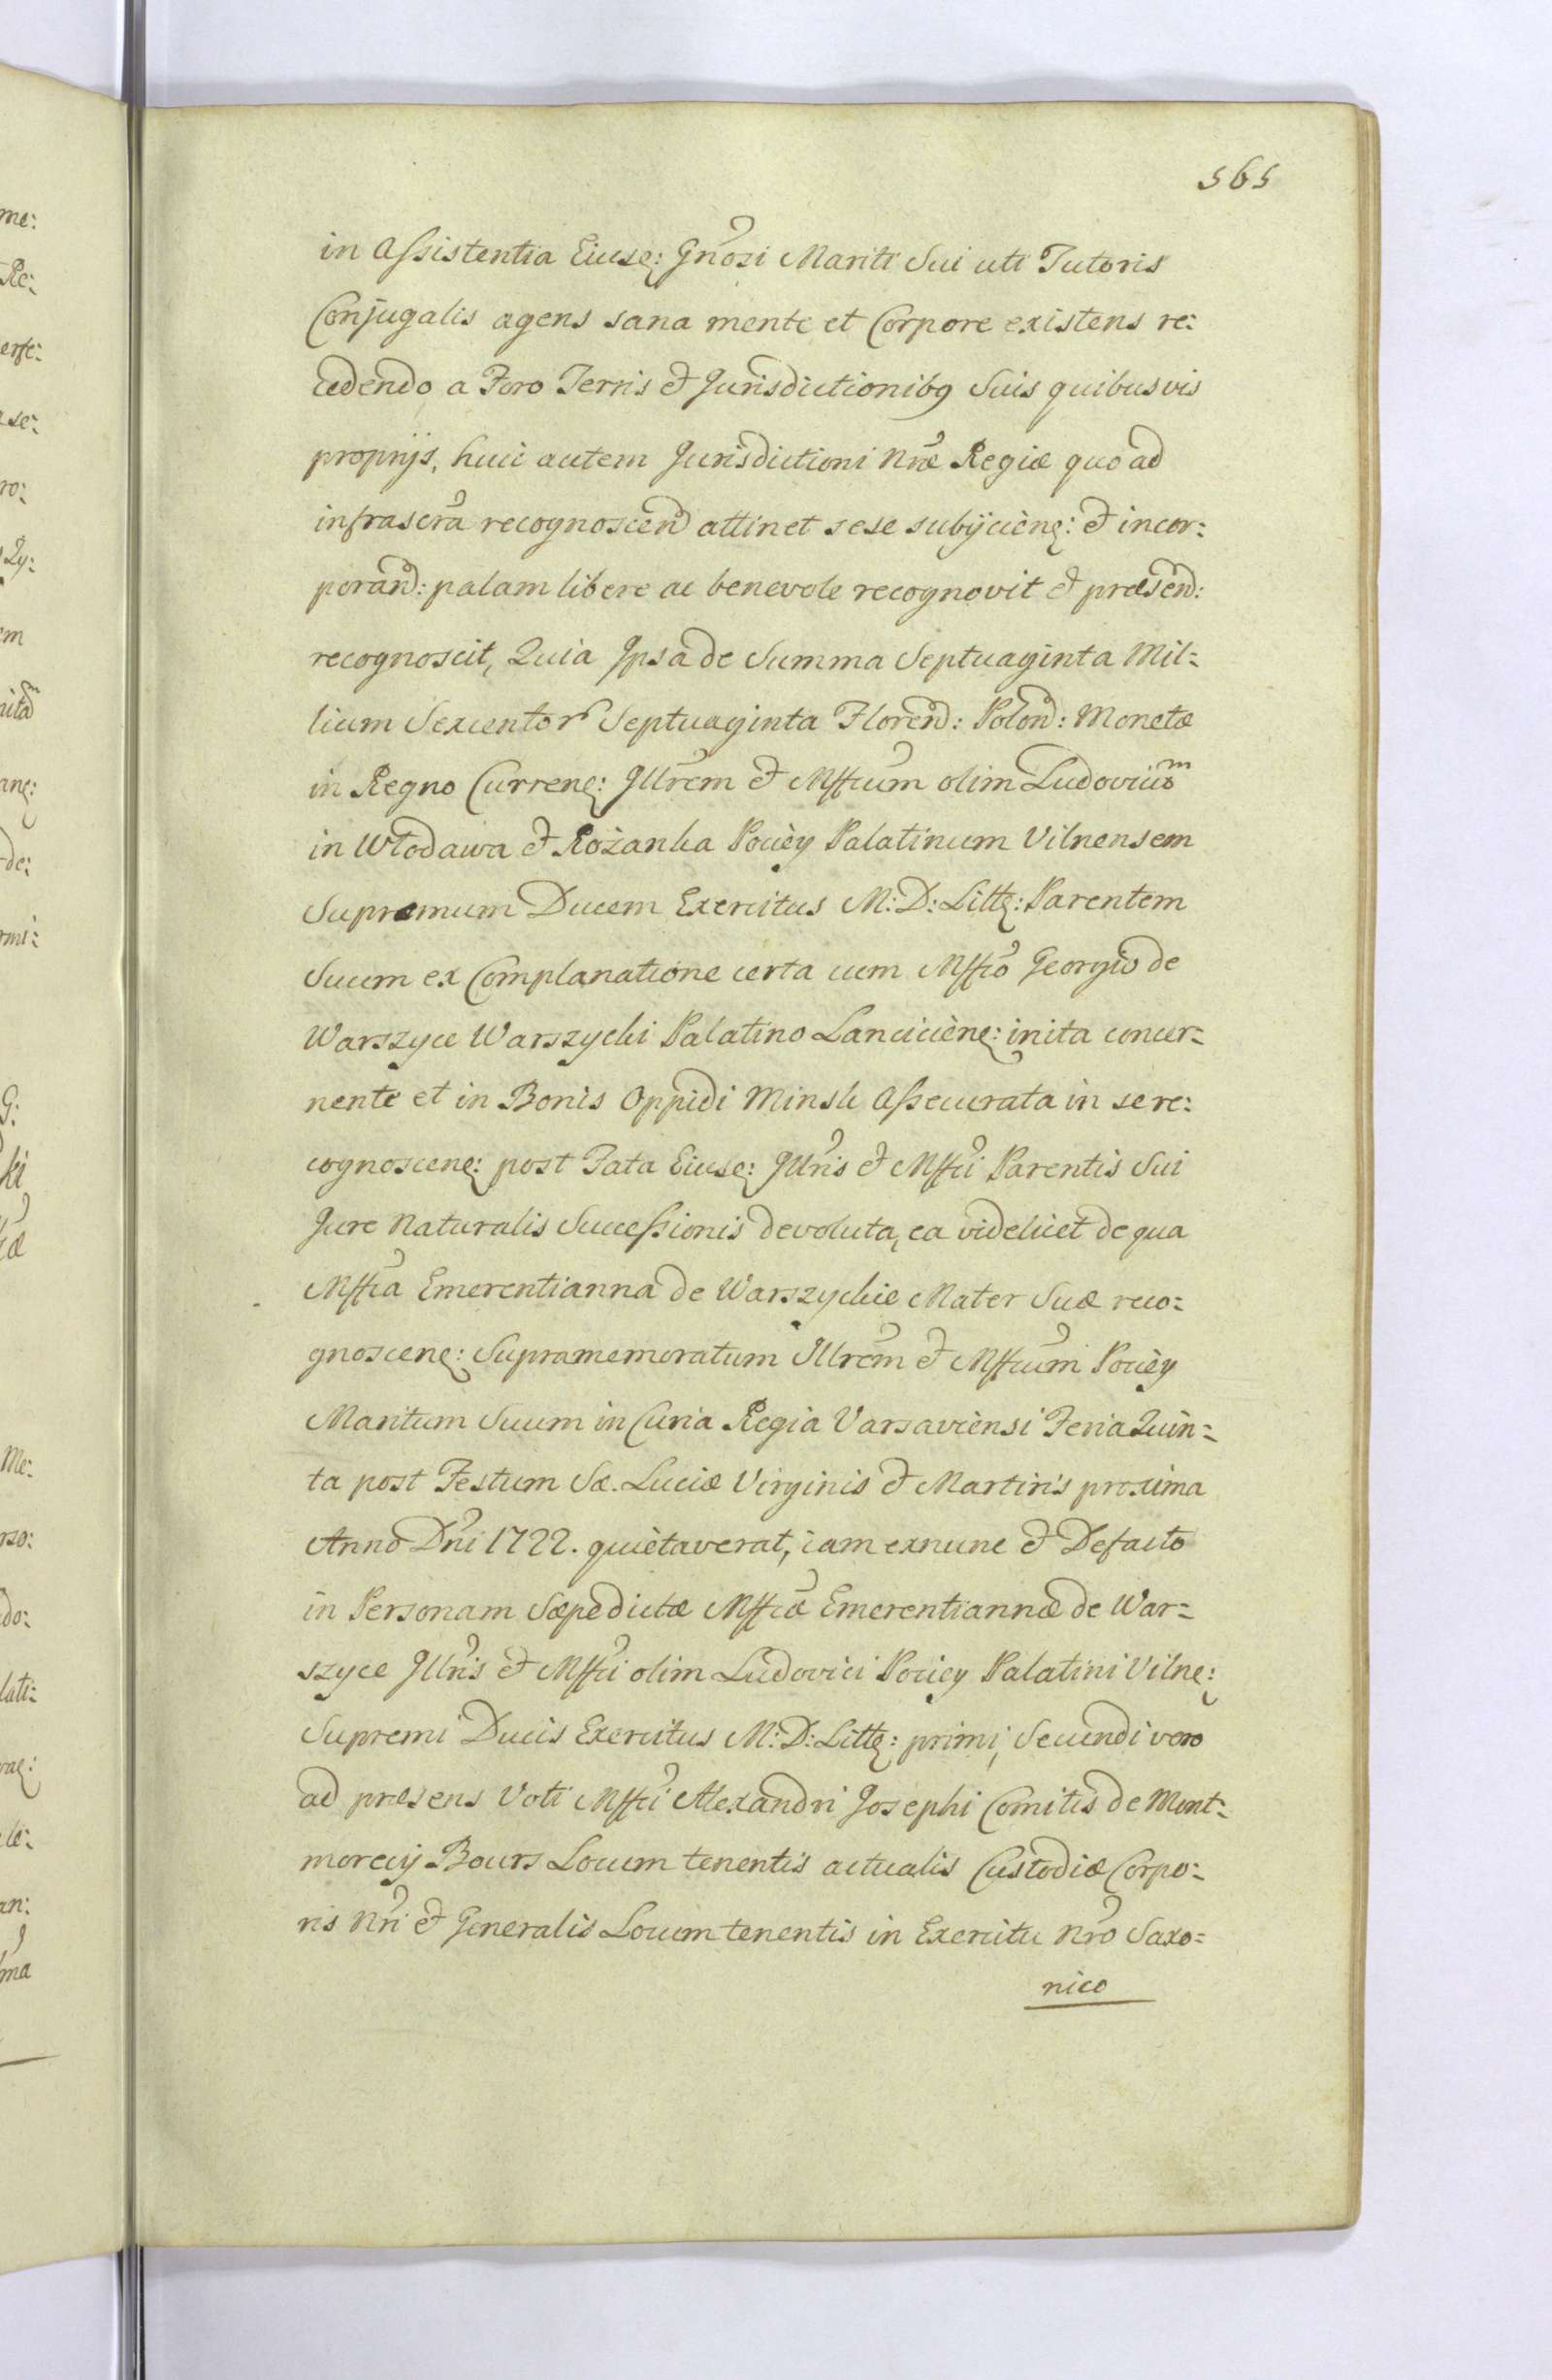 565
in Assistentia Eiusq: Gnosi Mariti Sui uti Tutoris
Conjugalis agens sana mente et Corpore existens re:
cedendo a Foro Terris et Jurisdictionibq Suis quibusvis
proprijs, huic autem Jurisdictioni Nræ Regiæ quo ad
infrascra recognoscend attinet sese subijcienq: et incor:
porand: palam libere ac benevole recognovit et præsend:
recognoscit, Quia Ipsa de Summa Septuaginta Mil:
lium Sexcentor Septuaginta Florend: Polond: Monetæ
in Regno Currenq: Illrem et Mffcum olim Ludovicum
in Włodawa et Rożanka Pociey Palatinum Vilnensem
Supremum Ducem Exercitus M: D: Littq: Parentem
Suum ex Complanatione certa cum Mffco Georgio de
Warszyce Warszycki Palatino Lancicienq: inita concer:
nente et in Bonis Oppidi Minsk Assecurata in se re:
cognoscenq: post Fata Eiusq: Illris et Mffci Parentis Sui
Jure Naturalis Successionis devoluta, ea videlicet de qua
Mffca Emerentianna de Warszyckie Mater Suæ reco:
gnoscenq: Supramemoratum Illrem et Mffcum Pociey
Maritum Suum in Curia Regia Varsaviensi Feria Quin:
ta post Festum Sæ. Luciæ Virginis et Martiris proxima
Anno Dni 1722. quietaverat, iam exnunc et Defacto
in Personam Sæpedictæ Mffcæ Emerentiannæ de War:
szyce Illris et Mffci olim Ludovici Pociey Palatini Vilnq:
Supremi Ducis Exercitus M: D: Littq: primi, Secundi vero
ad præsens Voti Mffci Alexandri Josephi Comitis de Mont:
morecij Bours Locum tenentis actualis Custodiæ Corpo:
ris Nri et Generalis Locum tenentis in Exercitu Nro Saxo:
nico